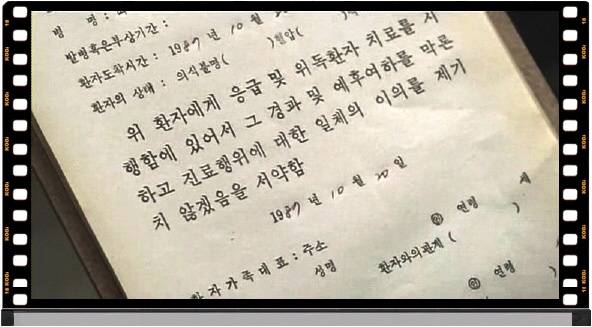 병 명 :
발병혹은부상기간 :
환자도착시간 : 1987 년 10 월 20
환자의 상태 : 의식불명( )혈압(
위 환자에게 응급 및 위독환자 치료를 시
행함에 있어서 그 경과 및 예후여하를 막론
하고 진료행위에 대한 일체의 이의를 제기
치 않겠음을 서약함
1987 년 10 월 20 일
환자가족대표 : 주소
성명 ㊞ 연령 세
환자와의관계 ( )
㊞ 연령